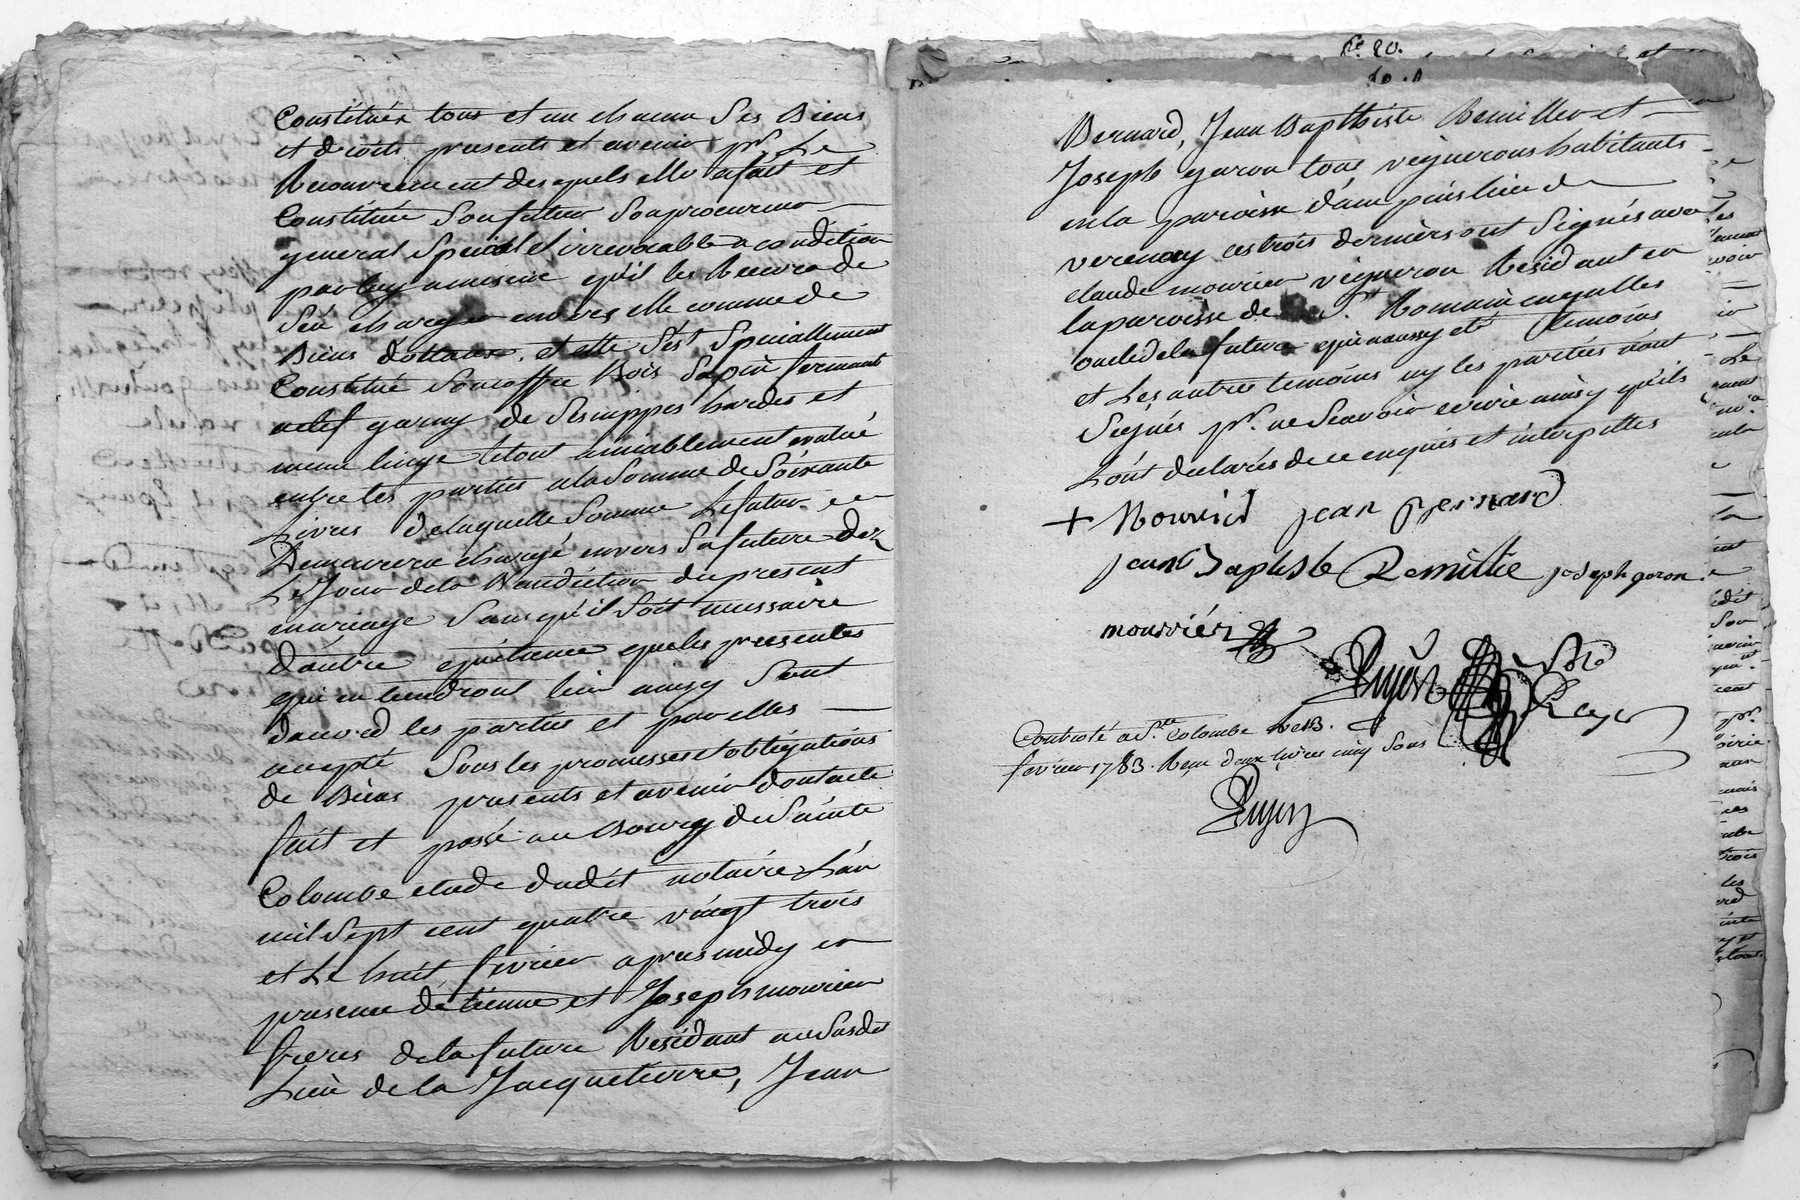 Constituée tous et un chacun Ses Biens
et droits presents et avenir pr. Le
Recouvrement desquels elle a fait et
Constitué Son futur Son procureur
general Special et irrevocable a condition
par luy a mesure qu'il les Recevra de
S'en charger envers elle comme de
Biens dottaux. et elle S'est Speciallement
Constitué Son coffre Bois Sapin fermant
a clef garny de Ses nippes hardes et
menu linge le tout amiablement evalué
entre les parties a la Somme de Soixante
Livres de laquelle Somme Le futur
Demeurera chargé envers Sa future dez
Le Jour de la Benediction du present
mariage Sans qu'il Soit necessaire
d'autre quittance que les presentes
qui en tiendront lieu ainsy Sont
d'accord les parties et par elles
accepté Sous les promesses obligations
de Biens presents et avenir dont acte
fait et passé au Bourg de Sainte
Colombe etude dudit notaire L'an
mil Sept cent quatre vingt trois
et Le huit fevrier apres midy en
presence d'etienne et Joseph mourier
freres de la future Residant au Susdit
Lieu de la Jacquetierre, Jean
fe. 20.
Bernard, Jean Baptiste Remillier et
Joseph garon tous vignerons habitants
en la paroisse d'ampuis lieu de
verenay ces trois derniers ont Signés avec
claude mourier vigneron Residant en
la paroisse de St. Romain en galles
oncle de la future qui a aussy eté temoins
et Les autres temoins ny les parties n'ont
Signés pr. ne Scavoir ecrire ainsy qu'ils
L'ont declarés de ce enquis et interpellés
+ Mourrier jean Bernard
jean Baptiste Remillie joseph garon
mourrier
Pujos
Controlé a Ste. Colombe Le 13.
fevrier 1783. Reçu deux livres cinq Sous
Pujos